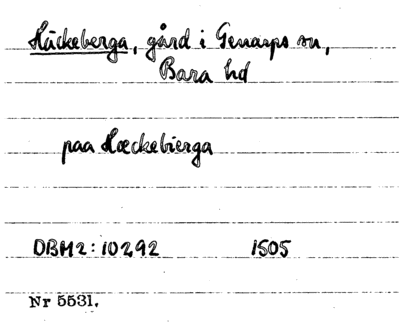 Häckeberga, gård i Genarps sn,
Bara hd
paa Hæckebierga
DBH2:10292 1505
Nr 5531.